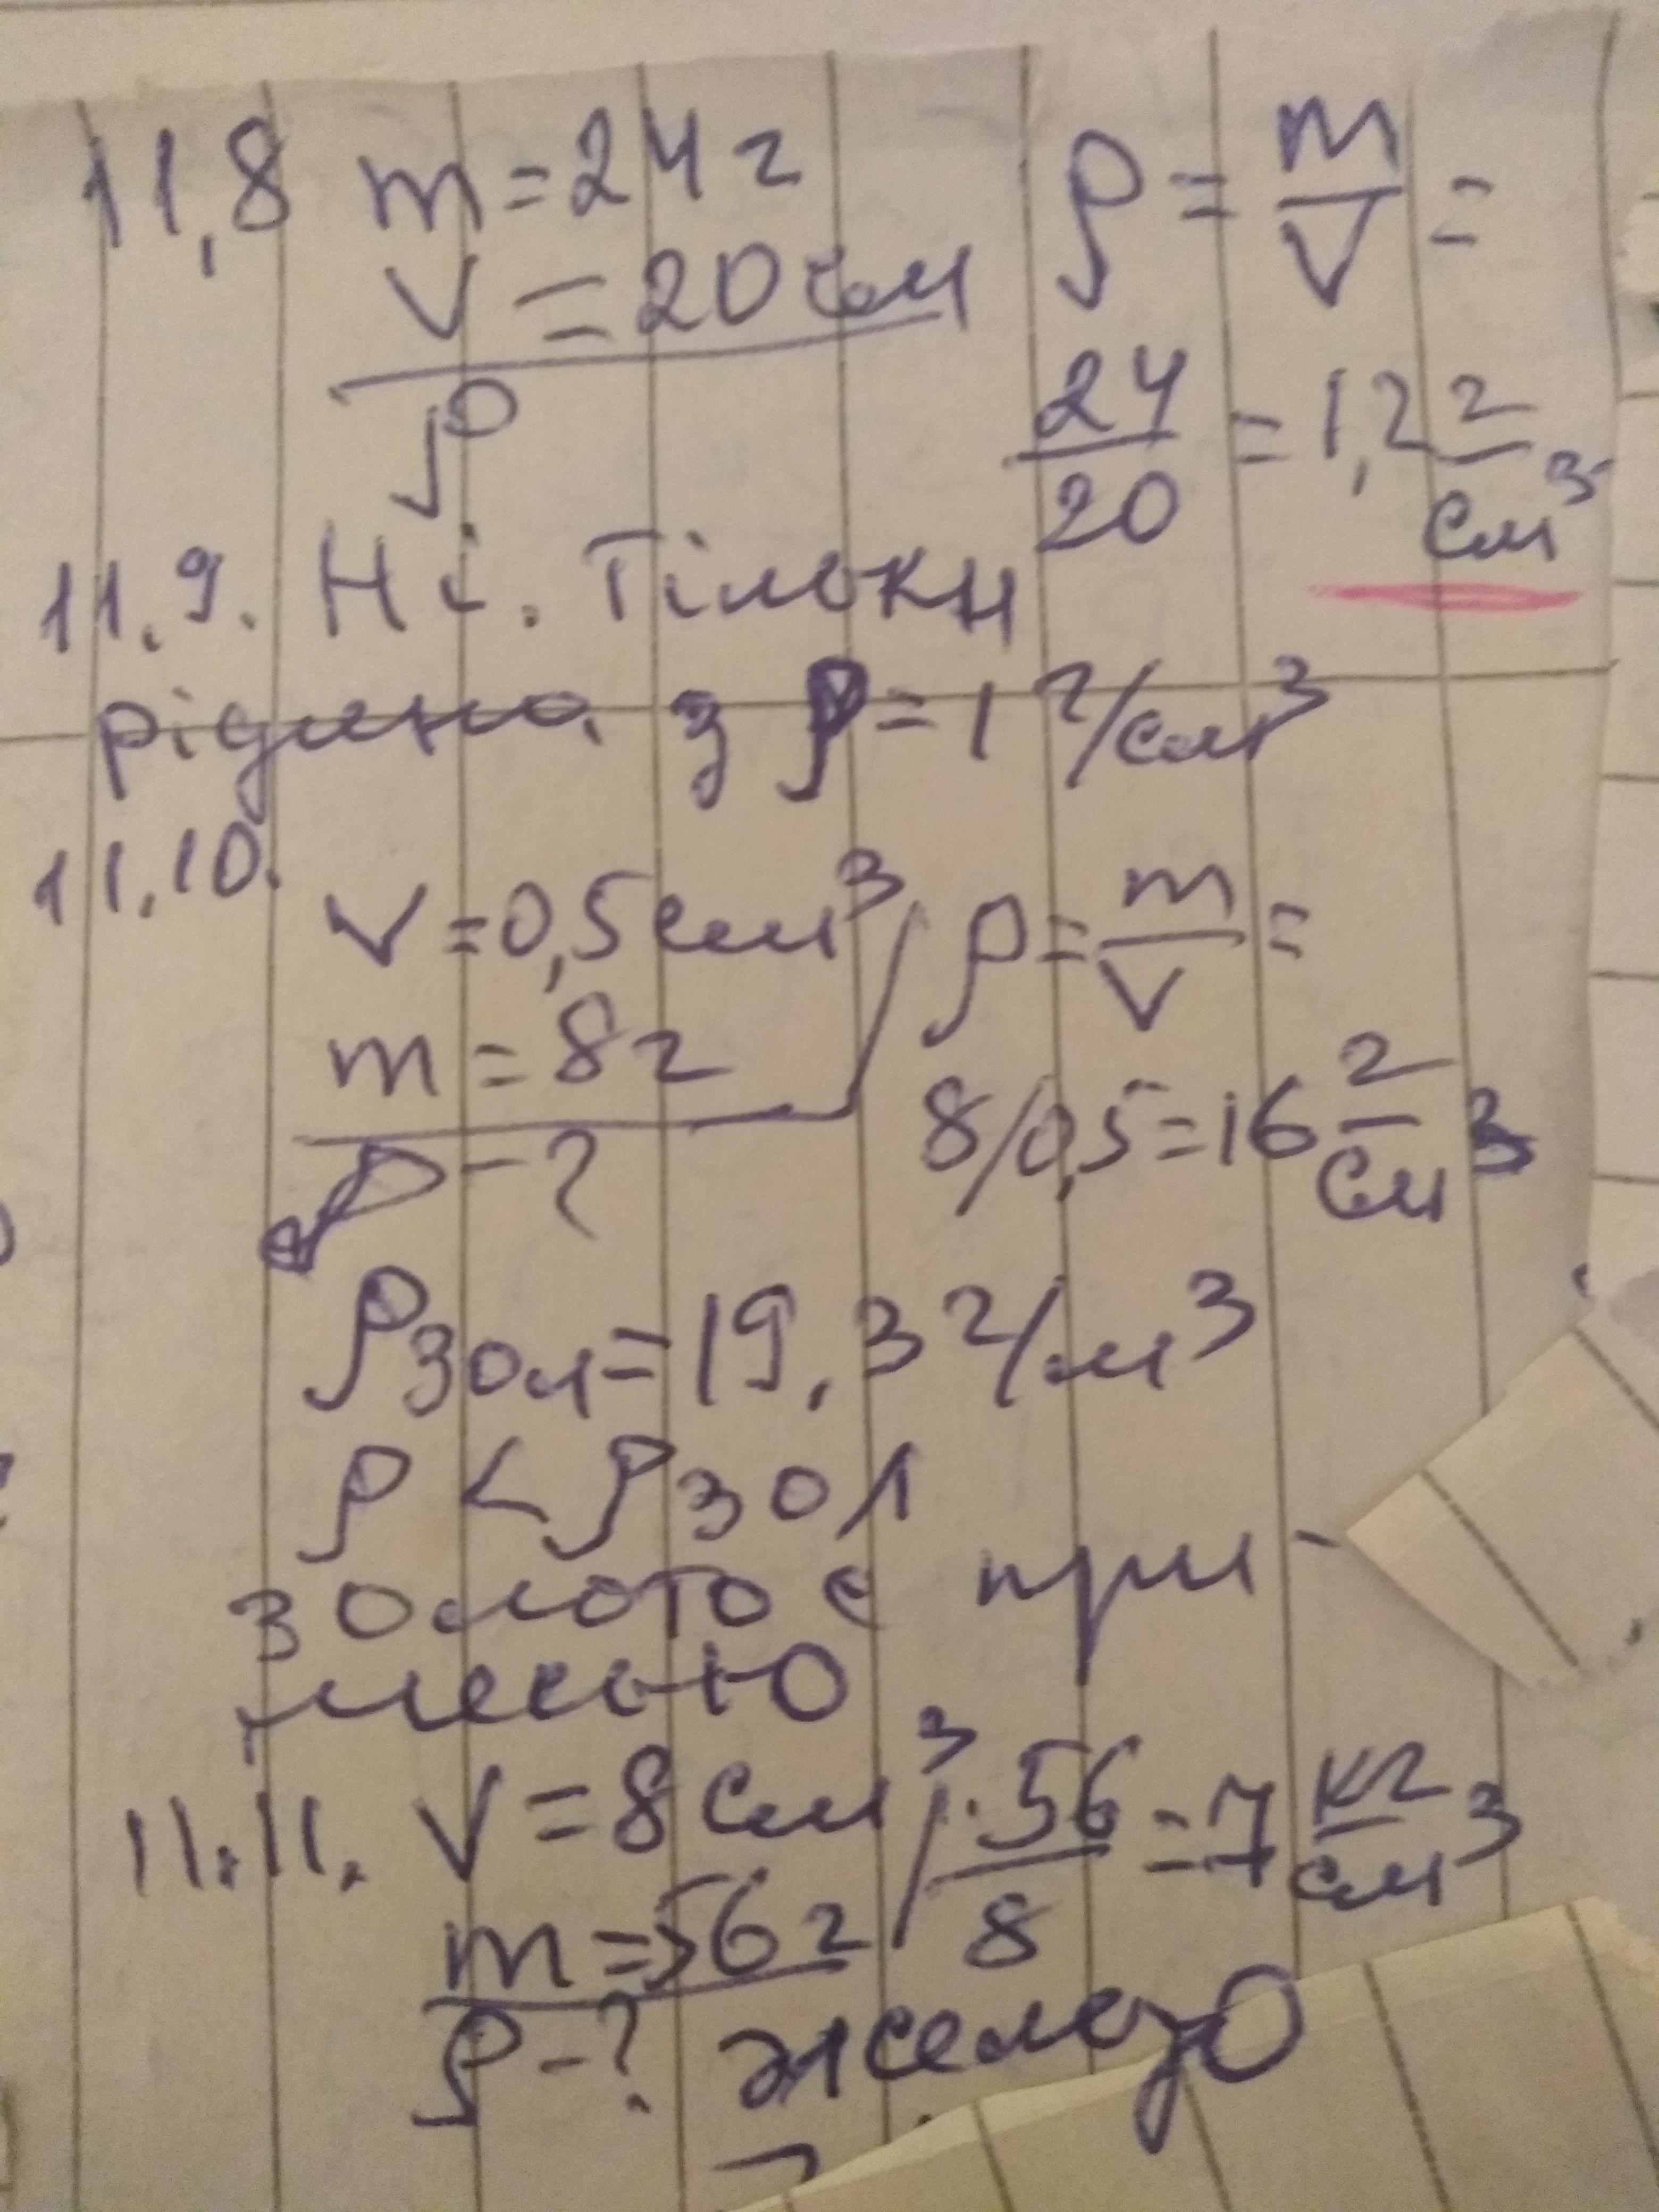 11,8 m = 24 г ρ = m/V =
V = 20 см
ρ 24/20 = 1,2 г/см³
11.9. Ні. Тільки
рідина з ρ = 1 г/см³
11.10.
V = 0,5 см³ ρ = m/V =
m = 8 г
ρ - ? 8/0,5 = 16 г/см³
ρзол = 19,3 г/м³
ρ < ρзол
золото с при-
месью
11.11. V = 8 см³ 56/8 = 7 кг/см³
m = 56 г
ρ - ? железо